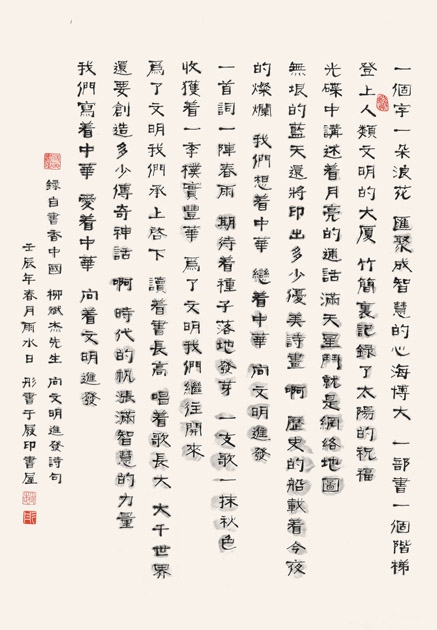 一個字一朵浪花 匯聚成智慧的心海博大 一部書一個階梯
登上人類文明的大厦 竹簡裏記錄了太陽的祝福
光碟中講述着月亮的通話 滿天星鬥就是網絡地圖
無垠的藍天還將印出多少優美詩畫 啊 歷史的船載着今夜
的燦爛 我們想着中華 戀着中華 向文明進發
一首詞一陣春雨 期待着種子落地發芽 一支歌一抹秋色
收獲着一季樸實豐華 爲了文明我們繼往開來
爲了文明我們承上啓下 讀着書長高 唱着歌長大 大千世界
還要創造多少傳奇神話 啊 時代的帆漲滿智慧的力量
我們寫着中華 愛着中華 向着文明進發
錄自書香中國 柳斌杰先生 向文明進發詩句
壬辰年春月雨水日 彤書于履印書屋